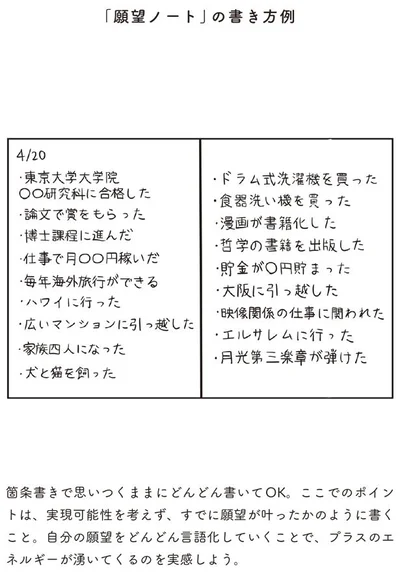 「願望ノート」の書き方例
4/20
・東京大学大学院
〇〇研究科に合格した
・論文で賞をもらった
・博士課程に進んだ
・仕事で月〇〇円稼いだ
・毎年海外旅行ができる
・ハワイに行った
・広いマンションに引っ越した
・家族四人になった
・犬と猫を飼った
・ドラム式洗濯機を買った
・食器洗い機を買った
・漫画が書籍化した
・哲学の書籍を出版した
・貯金が〇円貯まった
・大阪に引っ越した
・映像関係の仕事に関われた
・エルサレムに行った
・月光第三楽章が弾けた
箇条書きで思いつくままにどんどん書いてOK。ここでのポイン
トは、実現可能性を考えず、すでに願望が叶ったかのように書く
こと。自分の願望をどんどん言語化していくことで、プラスのエ
ネルギーが湧いてくるのを実感しよう。